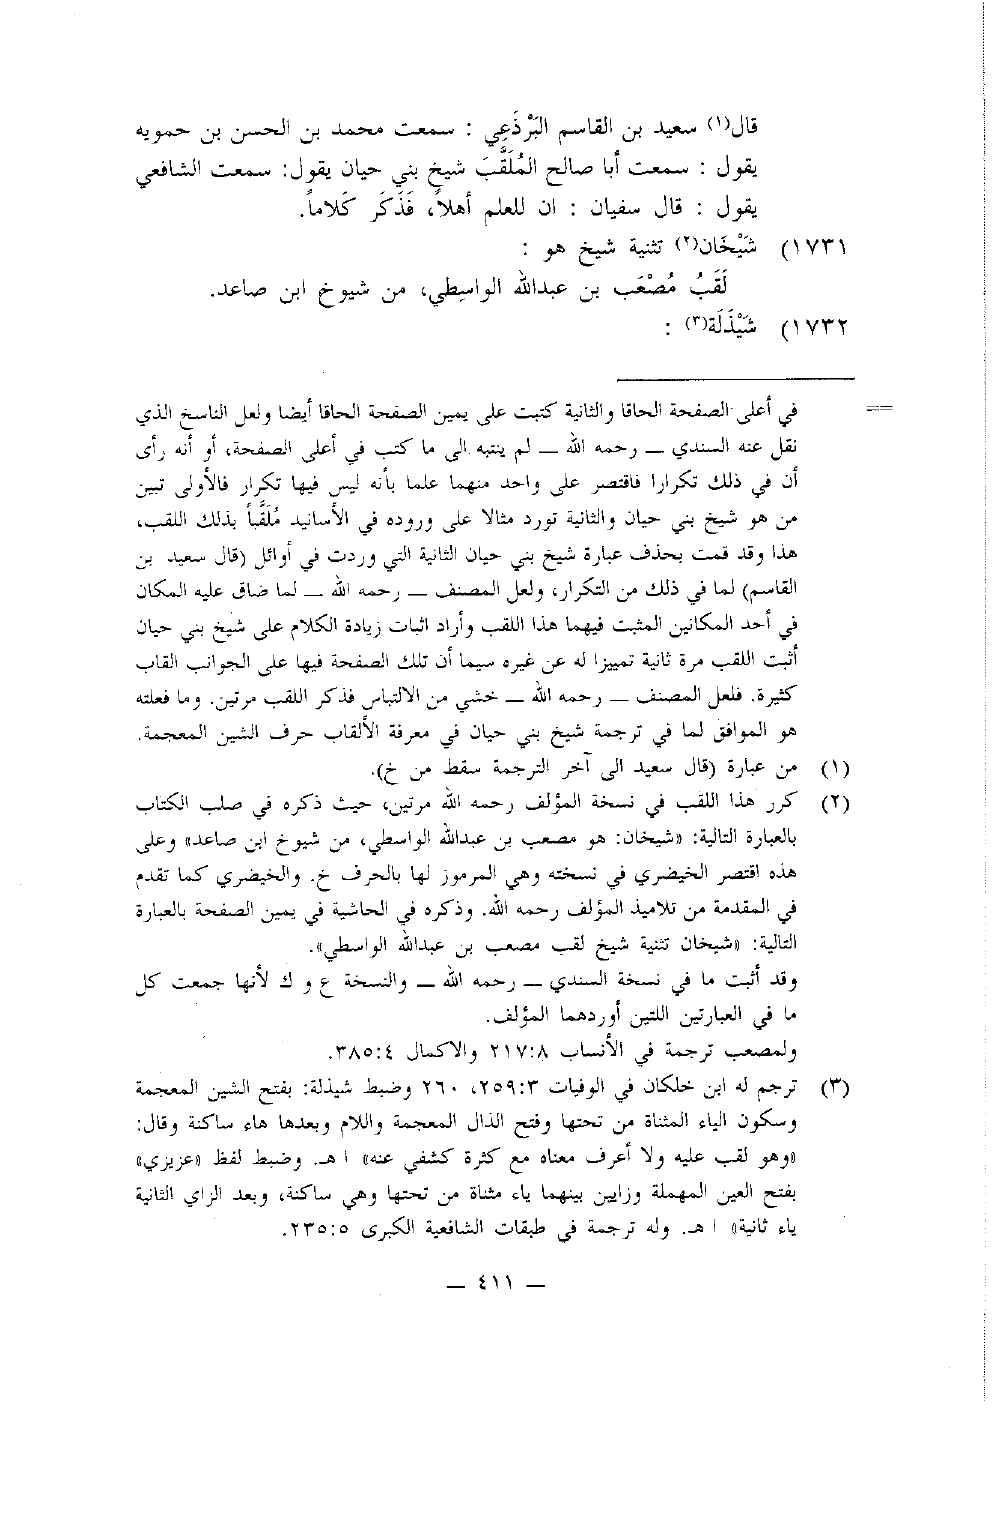 قال(١) سعيد بن القاسم البَرْذَعِي : سمعت محمد بن الحسن بن حمويه
يقول : سمعت أبا صالح المُلَقَّبَ شيخ بني حيان يقول: سمعت الشافعي
يقول : قال سفيان : ان للعلم أهلاً، فَذَكَر كَلاماً.
١٧٣١) شَيْخَان(٢) تثنية شيخ هو :
لَقَبُ مُصْعَب بن عبدالله الواسِطي، من شيوخ ابن صاعد.
١٧٣٢) شَيْذَلَة(٣) :
== في أعلى الصفحة الحاقا والثانية كتبت على يمين الصفحة الحاقا أيضا ولعل الناسخ الذي
نقل عنه السندي ــ رحمه الله ــ لم ينتبه الى ما كتب في أعلى الصفحة، أو أنه رأى
أن في ذلك تكرارا فاقتصر على واحد منهما علما بأنه ليس فيها تكرار فالأولى تبين
من هو شيخ بني حيان والثانية تورد مثالا على وروده في الأسانيد مُلَقَّباً بذلك اللقب،
هذا وقد قمت بحذف عبارة شيخ بني حيان الثانية التي وردت في أوائل (قال سعيد بن
القاسم) لما في ذلك من التكرار، ولعل المصنف ــ رحمه الله ــ لما ضاق عليه المكان
في أحد المكانين المثبت فيهما هذا اللقب وأراد اثبات زيادة الكلام على شيخ بني حيان
أثبت اللقب مرة ثانية تمييزا له عن غيره سيما أن تلك الصفحة فيها على الجوانب القاب
كثيرة. فلعل المصنف ــ رحمه الله ــ خشي من الالتباس فذكر اللقب مرتين. وما فعلته
هو الموافق لما في ترجمة شيخ بني حيان في معرفة الألقاب حرف الشين المعجمة.
(١) من عبارة (قال سعيد الى آخر الترجمة سقط من خ).
(٢) كرر هذا اللقب في نسخة المؤلف رحمه الله مرتين، حيث ذكره في صلب الكتاب
بالعبارة التالية: «شيخان: هو مصعب بن عبدالله الواسطي، من شيوخ ابن صاعد» وعلى
هذه اقتصر الخيضري في نسخته وهي المرموز لها بالحرف خ. والخيضري كما تقدم
في المقدمة من تلاميذ المؤلف رحمه الله. وذكره في الحاشية في يمين الصفحة بالعبارة
التالية: «شيخان تثنية شيخ لقب مصعب بن عبدالله الواسطي».
وقد أثبت ما في نسخة السندي ــ رحمه الله ــ والنسخة ع و ك لأنها جمعت كل
ما في العبارتين اللتين أوردهما المؤلف.
ولمصعب ترجمة في الأنساب ٢١٧:٨ والاكمال ٣٨٥:٤.
(٣) ترجم له ابن خلكان في الوفيات ٢٥٩:٣، ٢٦٠ وضبط شيذلة: بفتح الشين المعجمة
وسكون الياء المثناة من تحتها وفتح الذال المعجمة واللام وبعدها هاء ساكنة وقال:
«وهو لقب عليه ولا أعرف معناه مع كثرة كشفي عنه» ا هـ. وضبط لفظ «عزيزي»
بفتح العين المهملة وزايين بينهما ياء مثناة من تحتها وهي ساكنة، وبعد الزاي الثانية
ياء ثانية» ا هـ. وله ترجمة في طبقات الشافعية الكبرى ٢٣٥:٥.
ــ ٤١١ ــ